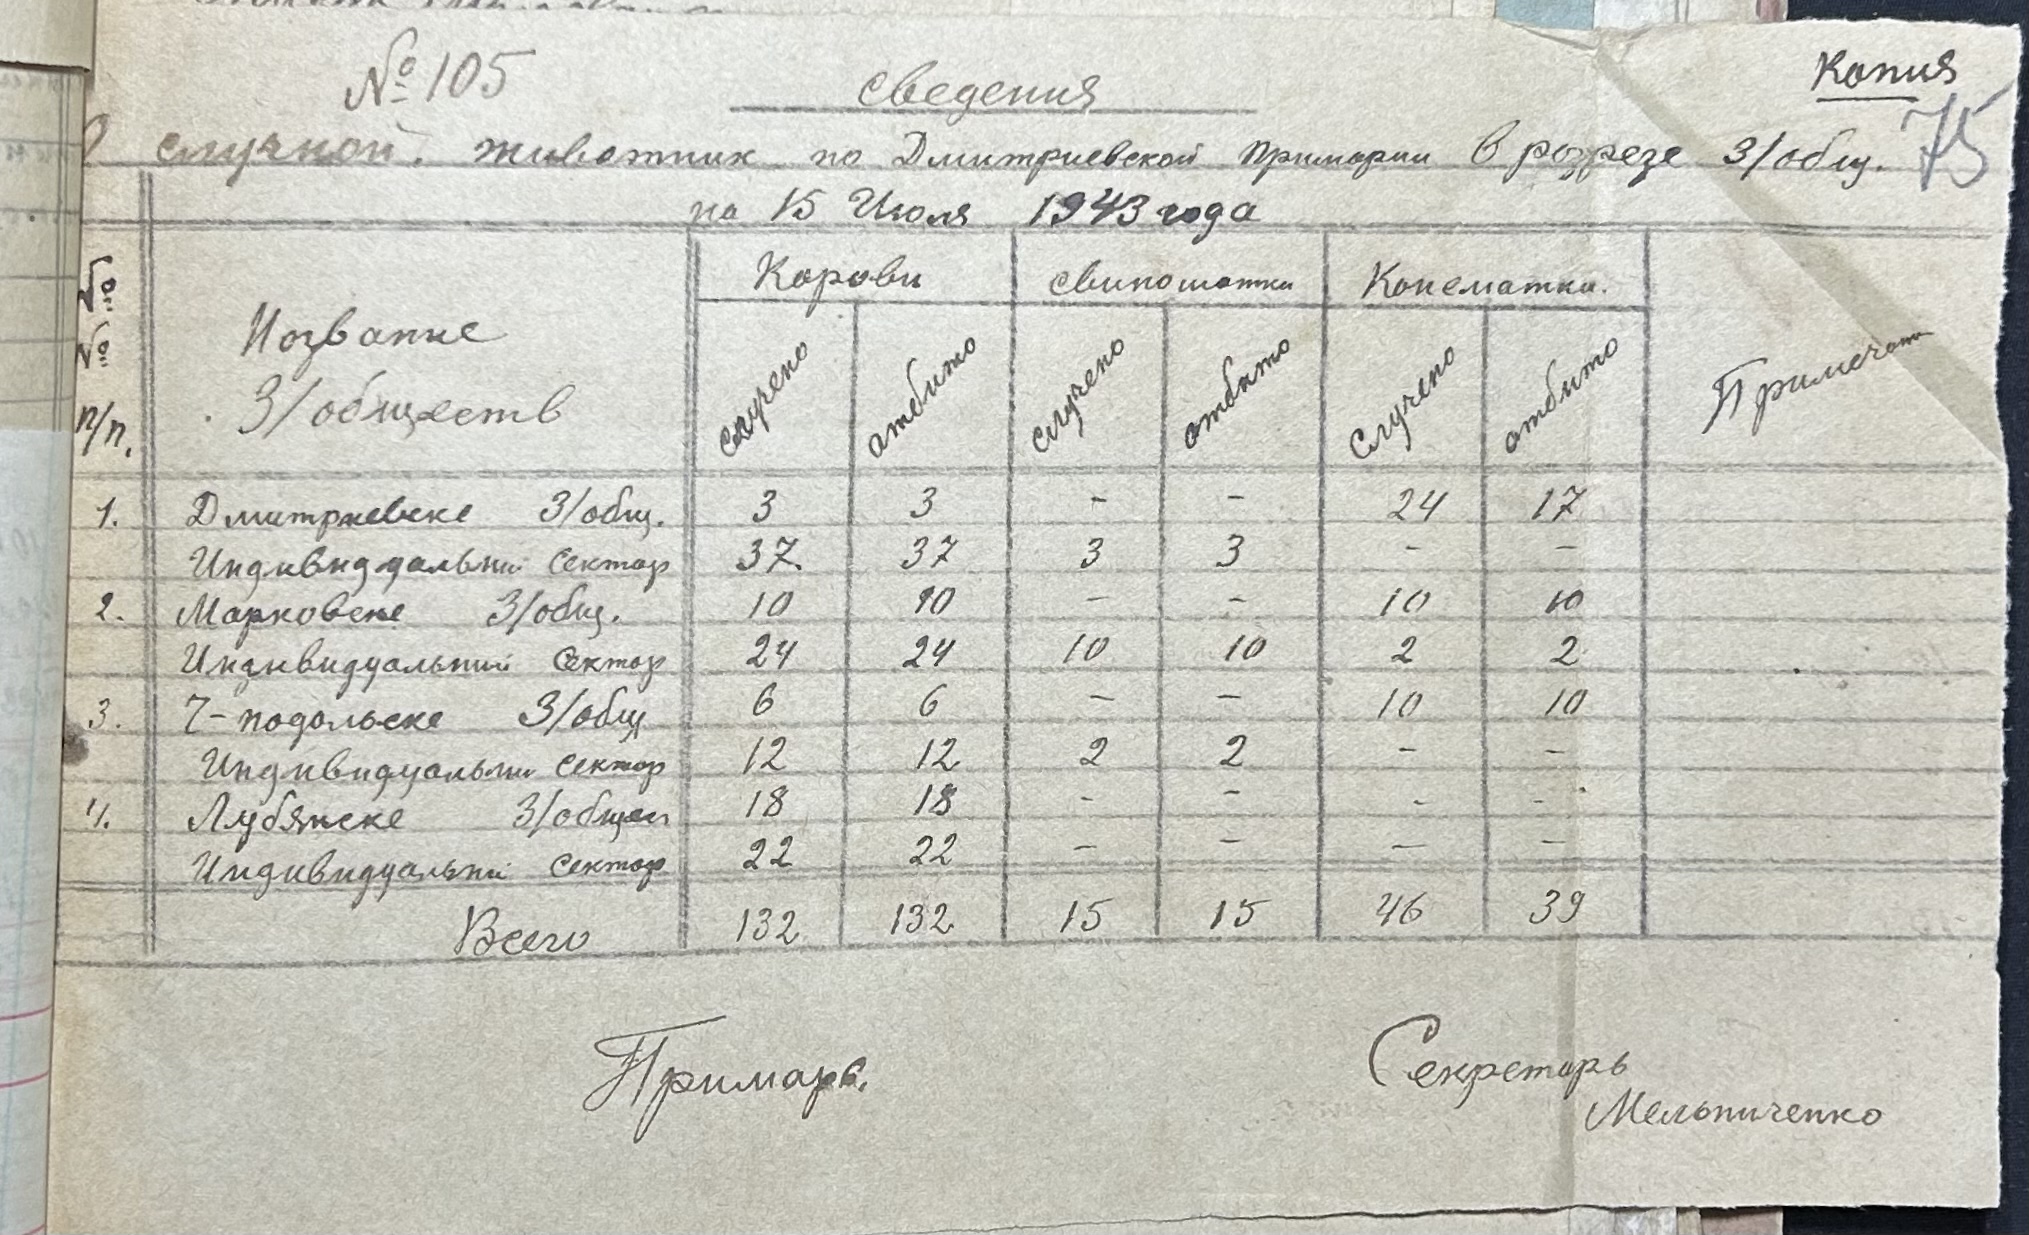 № 105
сведения
Копия
75
О случной. животник по Дмитриевской Примарии в розрезе З/общ.
на 15 Июля 1943 года
№ № п/п. Название З/обществ Корови свиноматки Конематки. Примечан
случено отбито случено отбито случено отбито
1. Дмитриевске З/общ. 3 3 - - 24 17
Индивиддальни сектор 37. 37 3 3 - -
2. Марковске З/общ. 10 10 - - 10 10
Индивидуальний сектор 24 24 10 10 2 2
3. Ч-подольске З/общ 6 6 - - 10 10
Индивидуальни сектор 12 12 2 2 - -
4. Лубянске З/общ 18 18 - - - -
Индивидуальни сектор 22 22 - - - -
Всего 132 132 15 15 46 39
Примарь.
Секреторь
Мельниченко